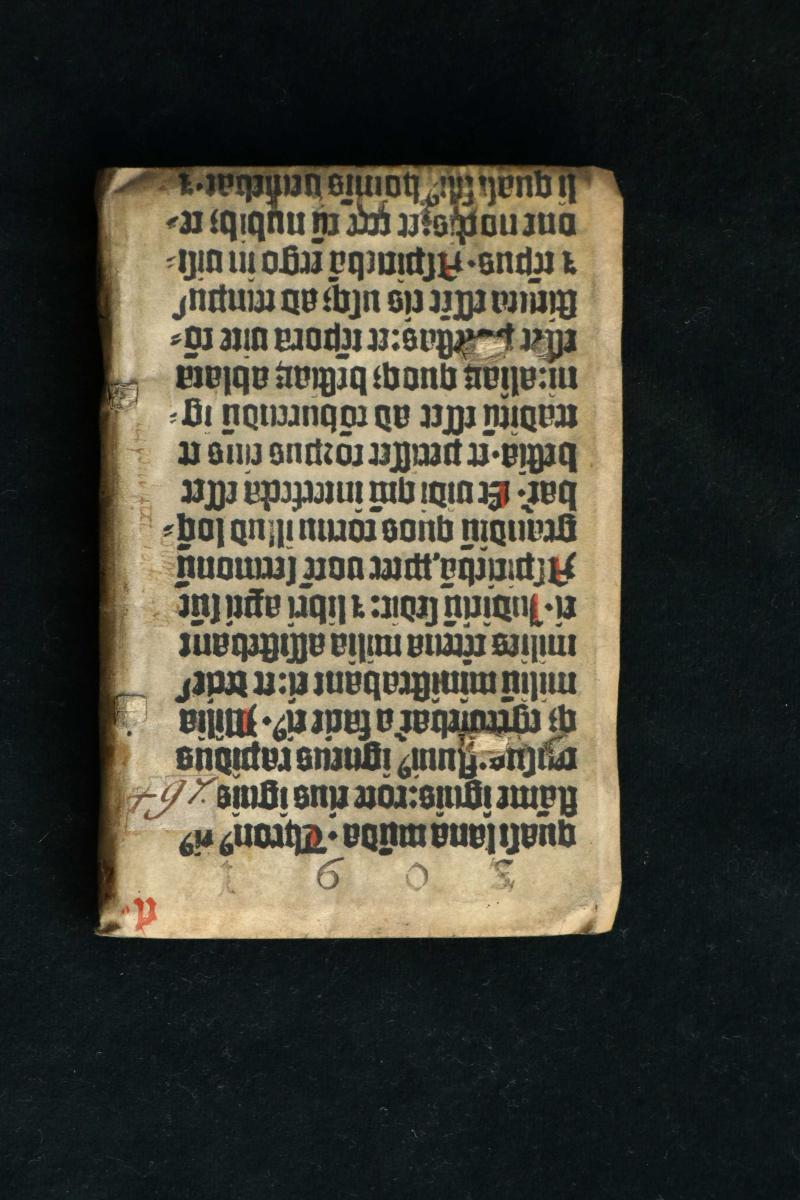 quasi lana mūda. Thron⁹ ei⁹
flāme ignis: rote eius ignis
accēsus. fluui⁹ igneus rapidus
q; egrediebat̄ a facie ei⁹. Milia
miliū ministrabant ei: et decies
milies cētena milia assistebant
ei. Iudiciū sedit: ⁊ libri apti sūt
Aspiciebā ꝓpter voce sermonū
grandiū quos cornu illud loq̄-
bat̄. Et vidi qm̄ interfecta esset
bestia. et perisset corpus eius et
traditū esset ad cōburendū ig-
ni: aliaꝝ quoq; bestiaꝝ ablata
esset potestas: et tēpora vite cō-
stituta essēt eis usq; ad tempus
⁊ tēpus. Aspiciebā ergo in visi-
one noctis: et ecce cū nubib; ce-
li quasi fili⁹ hoīnis veniebat. ⁊
497.
1605